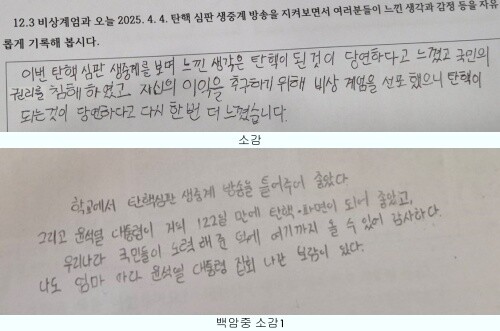 12.3 비상계엄과 오늘 2025. 4. 4. 탄핵 심판 생중계 방송을 지켜보면서 여러분들이 느낀 생각과 감정 등을 자유
롭게 기록해 봅시다.
이번 탄핵 심판 생중계를 보며 느낀 생각은 탄핵이 된 것이 당연하다고 느꼈고 국민의
권리를 침해 하였고, 자신의 이익을 추구하기 위해 비상 계엄을 선포 했으니 탄핵이
되는것이 당연하다고 다시 한 번 더 느꼈습니다.
소감
학교에서 탄핵심판 생중계 방송을 틀어주어 좋았다.
그리고 윤석열 대통령이 거의 122일 만에 탄핵·파면이 되어 좋았고,
우리나라 국민들이 노력해 준 덕에 여기까지 올 수 있어 감사하다.
나도 엄마 아빠 윤석열 대통령 집회 나간 보람이 있다.
백암중 소감1